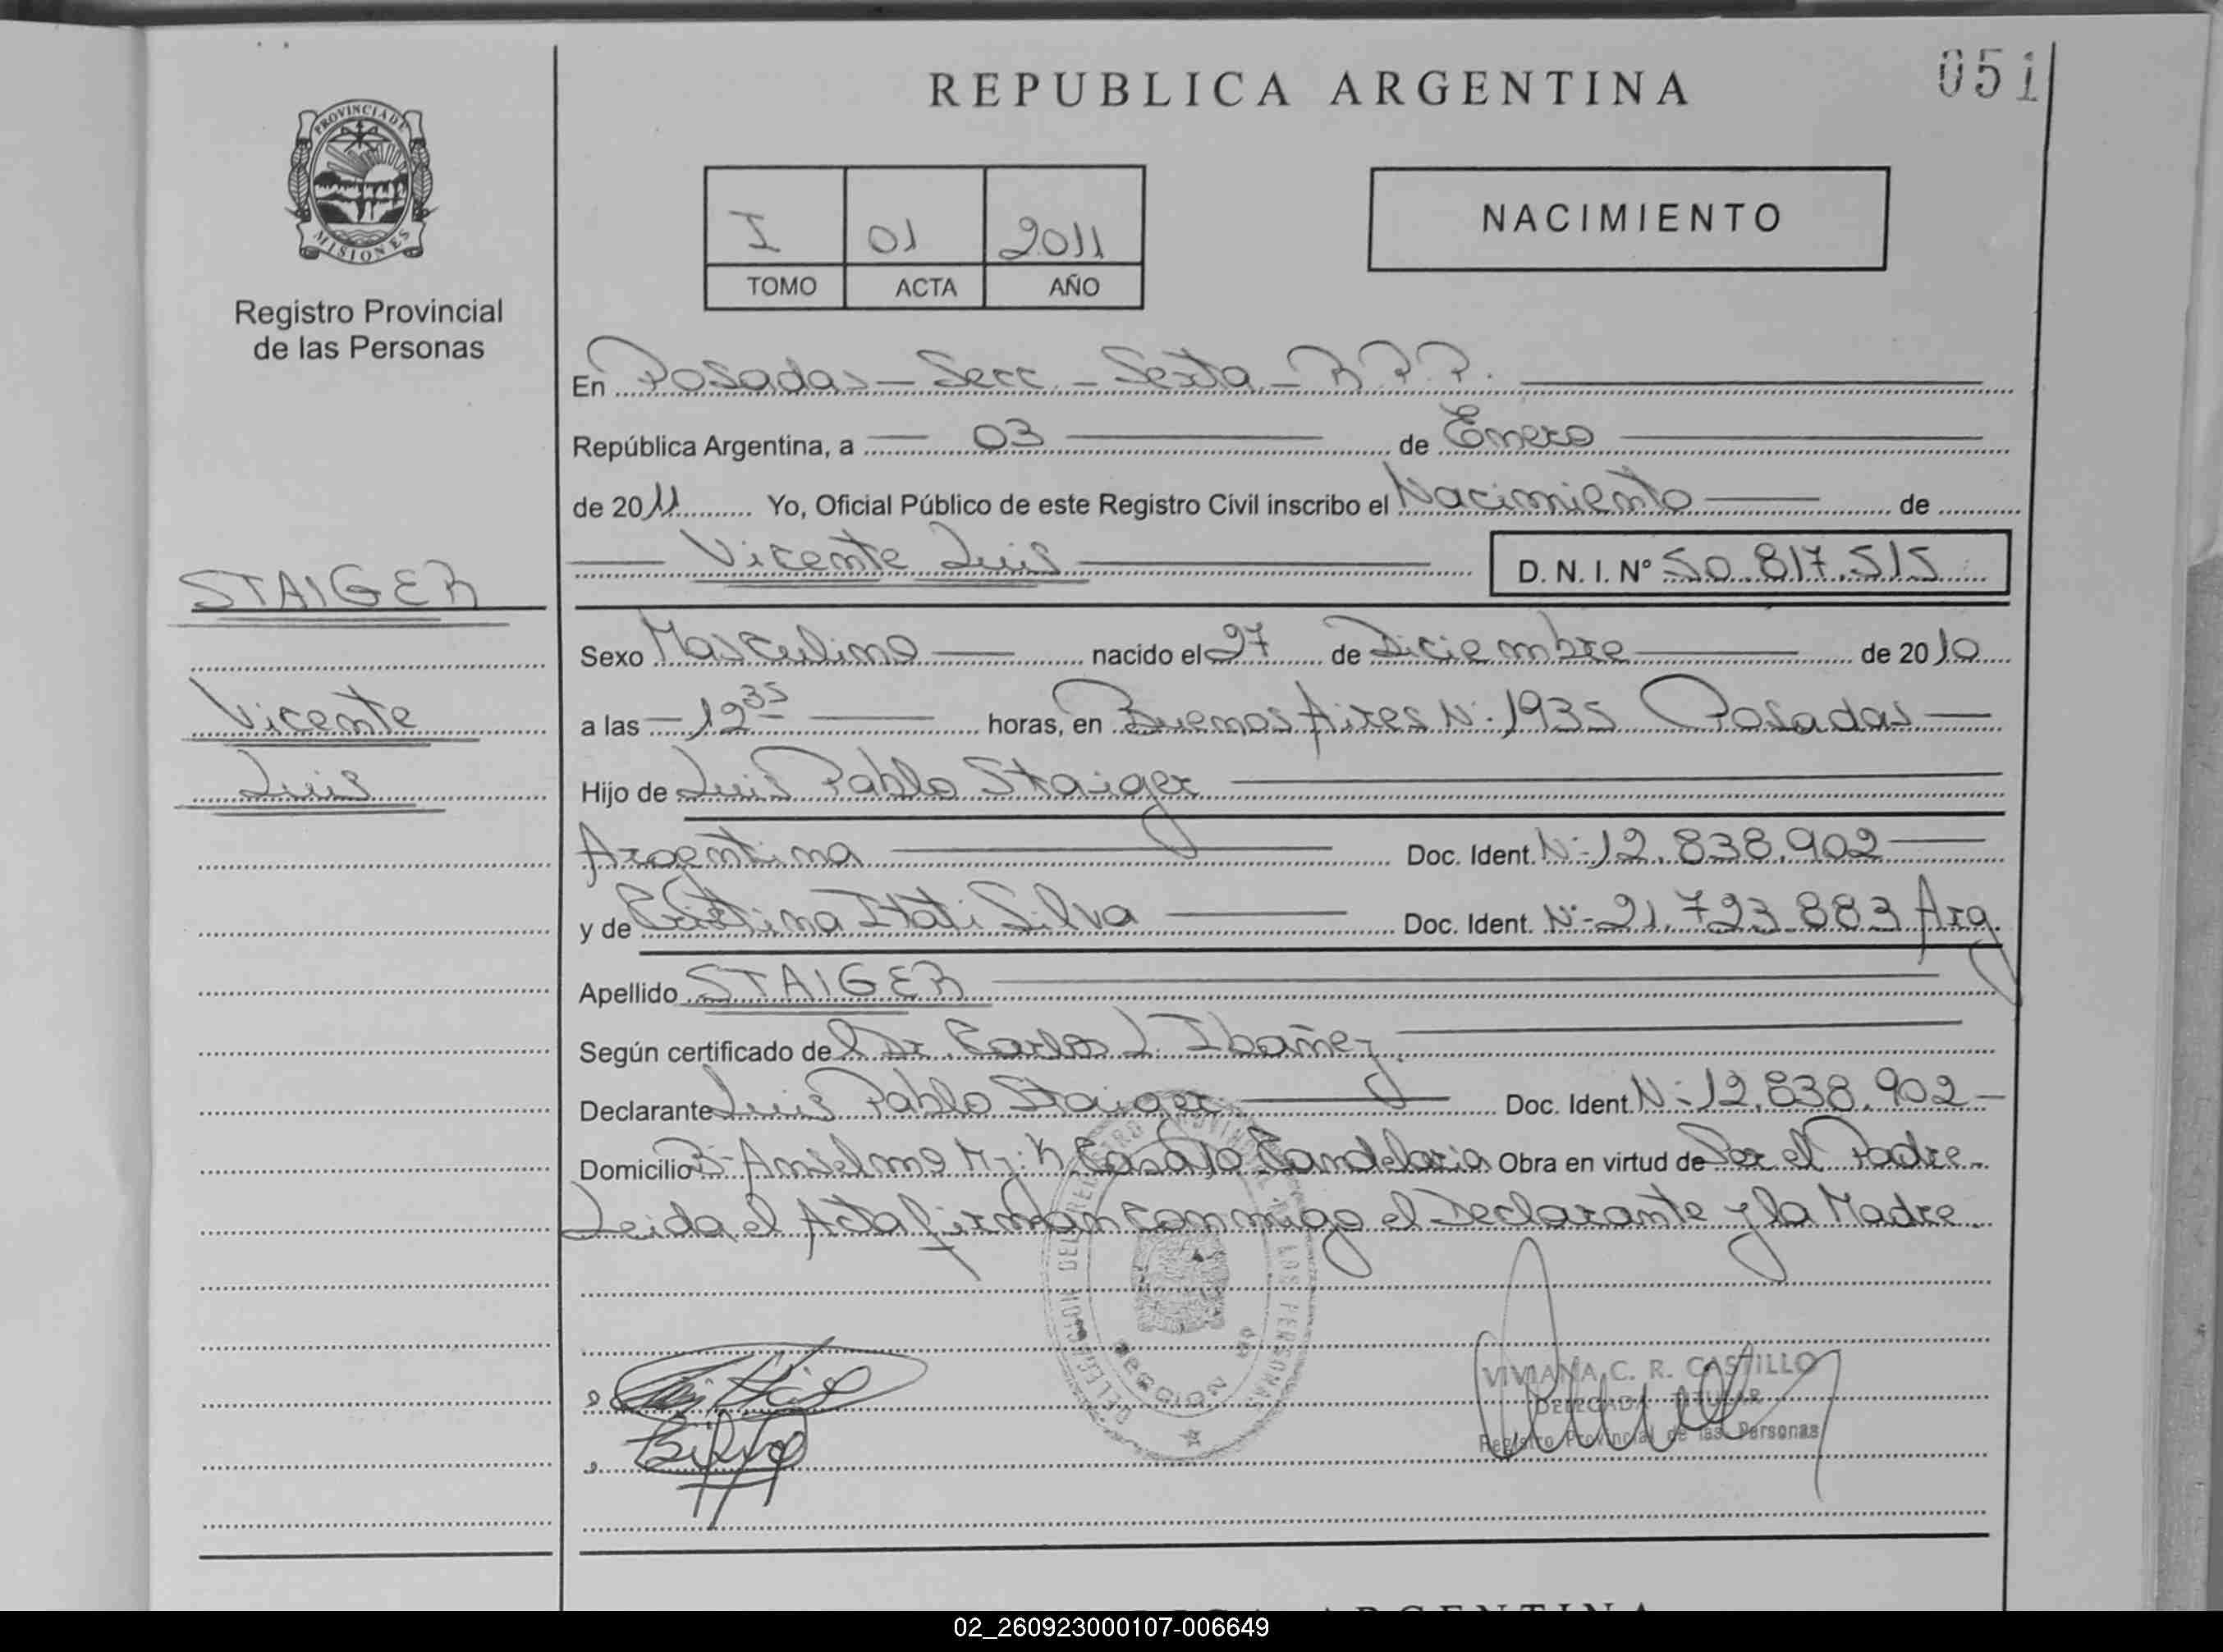 051
REPUBLICA ARGENTINA
PROVINCIA DE
MISIONES
Registro Provincial
de las Personas
I 01 2011
TOMO ACTA AÑO
NACIMIENTO
En Posadas - Secc. - Sexta - R.P.P.
República Argentina, a 03 de Enero
de 2011 Yo, Oficial Público de este Registro Civil inscribo el Nacimiento de
Vicente Luis D. N. I. Nº 50.817.515
STAIGER
Vicente
Luis
Sexo Masculino nacido el 27 de Diciembre de 2010
a las 12 35 horas, en Buenos Aires Nº 1935 Posadas
Hijo de Luis Pablo Staiger
Argentina Doc. Ident. Nº 12.838.902
y de Cristina Itati Silva Doc. Ident. Nº 21.723.883 Arg.
Apellido STAIGER
Según certificado del Dr. Carlos J. Ibañez
Declarante Luis Pablo Staiger Doc. Ident. Nº 12.838.902
Domicilio Bº Anselmo Candelaria Obra en virtud de Ser el Padre.
Leida el Acta firman conmigo el Declarante y la Madre.
VIVIANA C. R. CASTILLO
DELEGADA TITULAR
Registro Provincial de las Personas
ARGENTINA
02_260923000107-006649